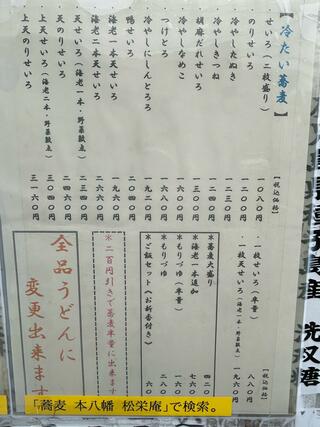 【冷たい蕎麦】
【税込価格】
せいろ(二枚盛り) 一〇八〇円
のりせいろ
冷やしたぬき
冷やしきつね
胡麻だれせいろ 一三〇〇円
冷やしなめこ
つけとろ
冷やしにしんとろろ 一九二〇円
鴨せいろ 二〇四〇円
海老一本天せいろ 一九六〇円
海老二本天せいろ
天せいろ(海老一本・野菜四点)
天のりせいろ
上天せいろ(海老二本・野菜四点) 三〇四〇円
上天のりせいろ 三一六〇円
【税込価格】
・一枚せいろ(半量) 八八〇円
・一枚天せいろ(海老一本・野菜四点) 一九六〇円
※蕎麦大盛り 四二〇
※海老一本追加 七六〇
※もりづゆ(半量) 一八〇
※もりづゆ 二八〇
※ご飯セット(お新香付き)
※二百円引きで蕎麦半量に出来ます
全品うどんに
変更出来ます
「蕎麦 本八幡 松栄庵」で検索。